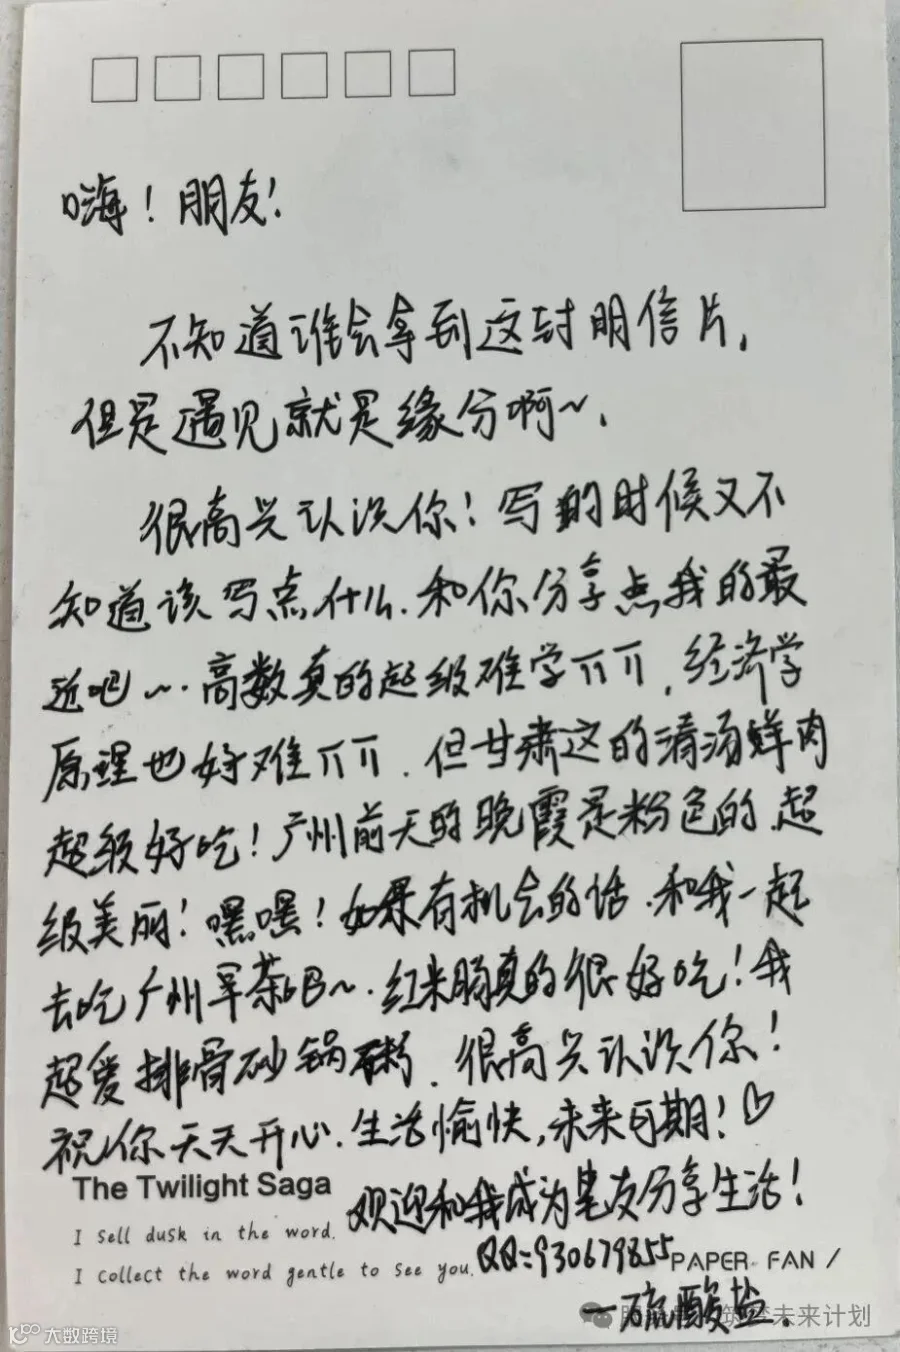 嗨！朋友！
不知道谁会拿到这封明信片，
但是遇见就是缘分啊~．
很高兴认识你！写的时候又不
知道该写点什么．和你分享点我的最
近吧~．高数真的超级难学ㄒㄒ，经济学
原理也好难ㄒㄒ．但甘肃这的清汤鲜肉
超级好吃！广州前天的晚霞是粉色的．超
级美丽！嘿嘿！如果有机会的话．和我一起
去吃广州早茶吧~．红米肠真的很好吃！我
超爱排骨砂锅粥．很高兴认识你！
祝你天天开心．生活愉快，未来可期！♡
The Twilight Saga
欢迎和我成为笔友分享生活！
I sell dusk in the word.
I collect the word gentle to see you.
QQ:930679855
PAPER FAN /
—硫酸盐．
未来计划
大数跨境